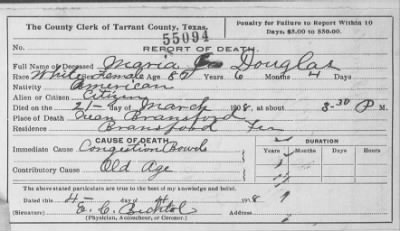 The County Clerk of Tarrant County, Texas.
Penalty for Failure to Report Within 10
Days, $5.00 to $50.00.
55094
No.
REPORT OF DEATH.
Full Name of Deceased Douglas
Race White Sex Female Age 87 Years 6 Months 4 Days
Nativity American
Alien or Citizen Citizen
Died on the 21- day of March 1908, at about 8-30 P M.
Place of Death Near Bransford
Residence Bransford Tex
CAUSE OF DEATH.
DURATION
Years Months Days Hours
Immediate Cause Congestion Bowels
Contributory Cause Old Age
The above stated particulars are true to the best of my knowledge and belief.
Dated this 4- day of 190 8
(Signature) E. C.
(Physician, Accoucheur, or Coroner.)